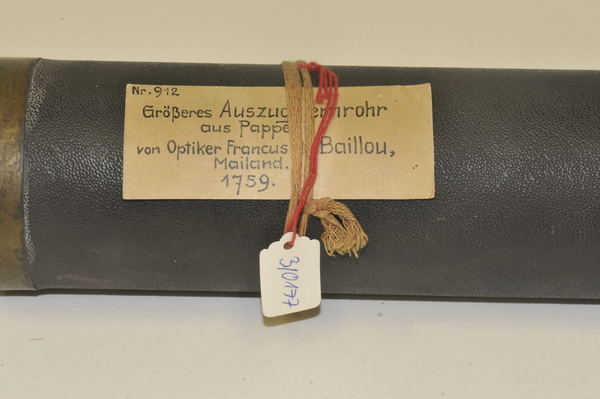 Nr. 912
Größeres Auszugfernrohr
aus Pappe
von Optiker Francus Baillou,
Mailand.
1759.
310177